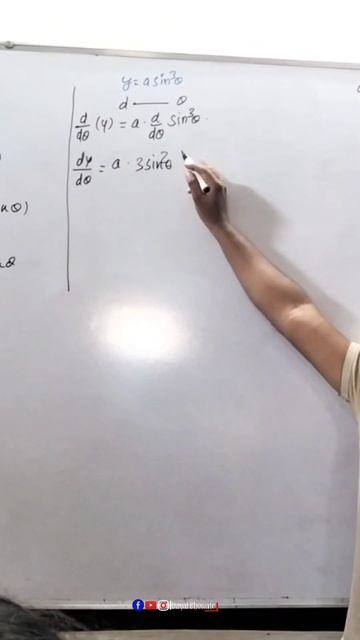 y = a sin³θ
d — θ
d/dθ (y) = a · d/dθ sin³θ ·
dy/dθ = a · 3sin²θ
θ)
θ